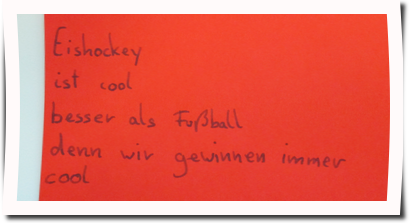 Eishockey
ist cool
besser als Fußball
denn wir gewinnen immer
cool